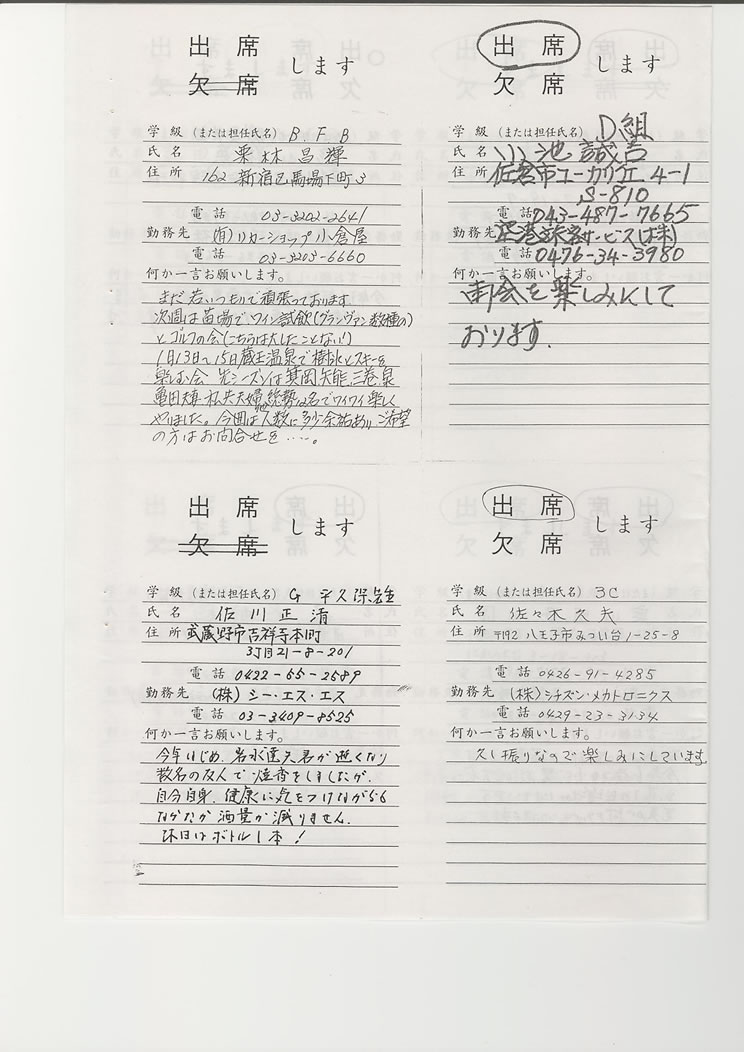 出席
欠席
します
学級（または担任氏名） B.F.B
氏名 栗林昌輝
住所 162 新宿区馬場下町3
電話 03-3202-2641
勤務先 (有)リカーショップ小倉屋
電話 03-3203-6660
何か一言お願いします。
まだ若いつもりで頑張っております
次週は苗場でワイン試飲(グランヴァン数種の)
とゴルフの会(こちらは大したことない!)
1月13日〜15日蔵王温泉で樹氷とスキーを
楽しむ会 先シーズンは箕岡 矢能 三巻 泉
亀田夫妻 松失夫婦他総勢12名でワイワイ楽しく
やりました。今回は人数に多少余裕あり ご希望
の方はお問合せを……。
出席
欠席
します
学級（または担任氏名） D組
氏名 小池誠吉
住所 佐倉市ユーカリが丘 4-1
S-810
電話 043-487-7665
勤務先 空港旅客サービス(株)
電話 0476-34-3980
何か一言お願いします。
再会を楽しみにして
おります.
出席
欠席
します
学級（または担任氏名） G 平久保
氏名 佐川正清
住所 武蔵野市吉祥寺本町
3丁目21-8-201
電話 0422-55-2589
勤務先 (株)シー・エス・エス
電話 03-3409-8525
何か一言お願いします。
今年はじめ、君が逝くなり
数名の友人で焼香をしましたが、
自分自身、健康に気をつけながらも
なかなか酒量が減りません.
休日はボトル1本!
出席
欠席
します
学級（または担任氏名） 3C
氏名 佐々木久夫
住所 〒192 八王子市みつい台1-25-8
電話 0426-91-4285
勤務先 (株)シチズン・メカトロニクス
電話 0429-23-3134
何か一言お願いします。
久し振りなので楽しみにしています